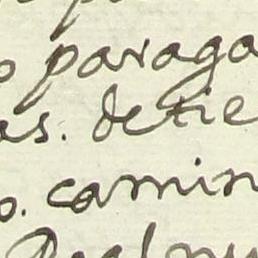 o paraga
as. detie
o. camin